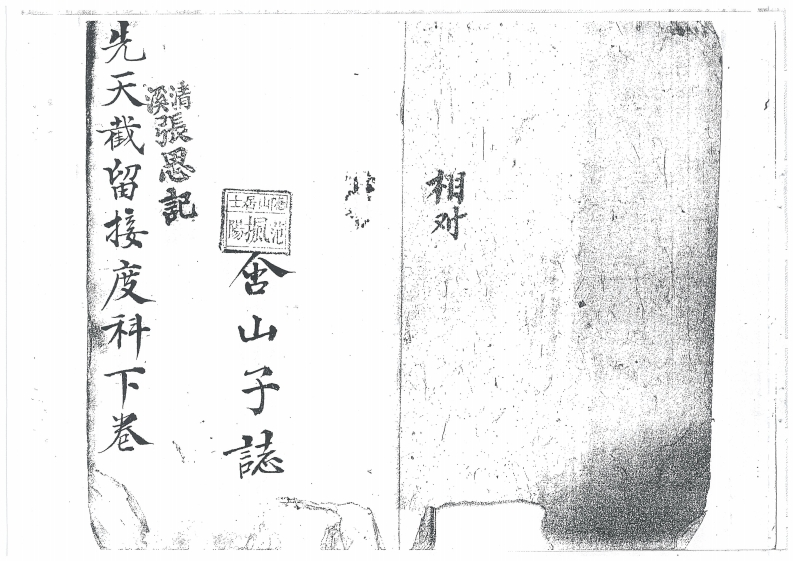 相对
山居士
舍山子誌
清溪張思記
先天截留接度科下卷